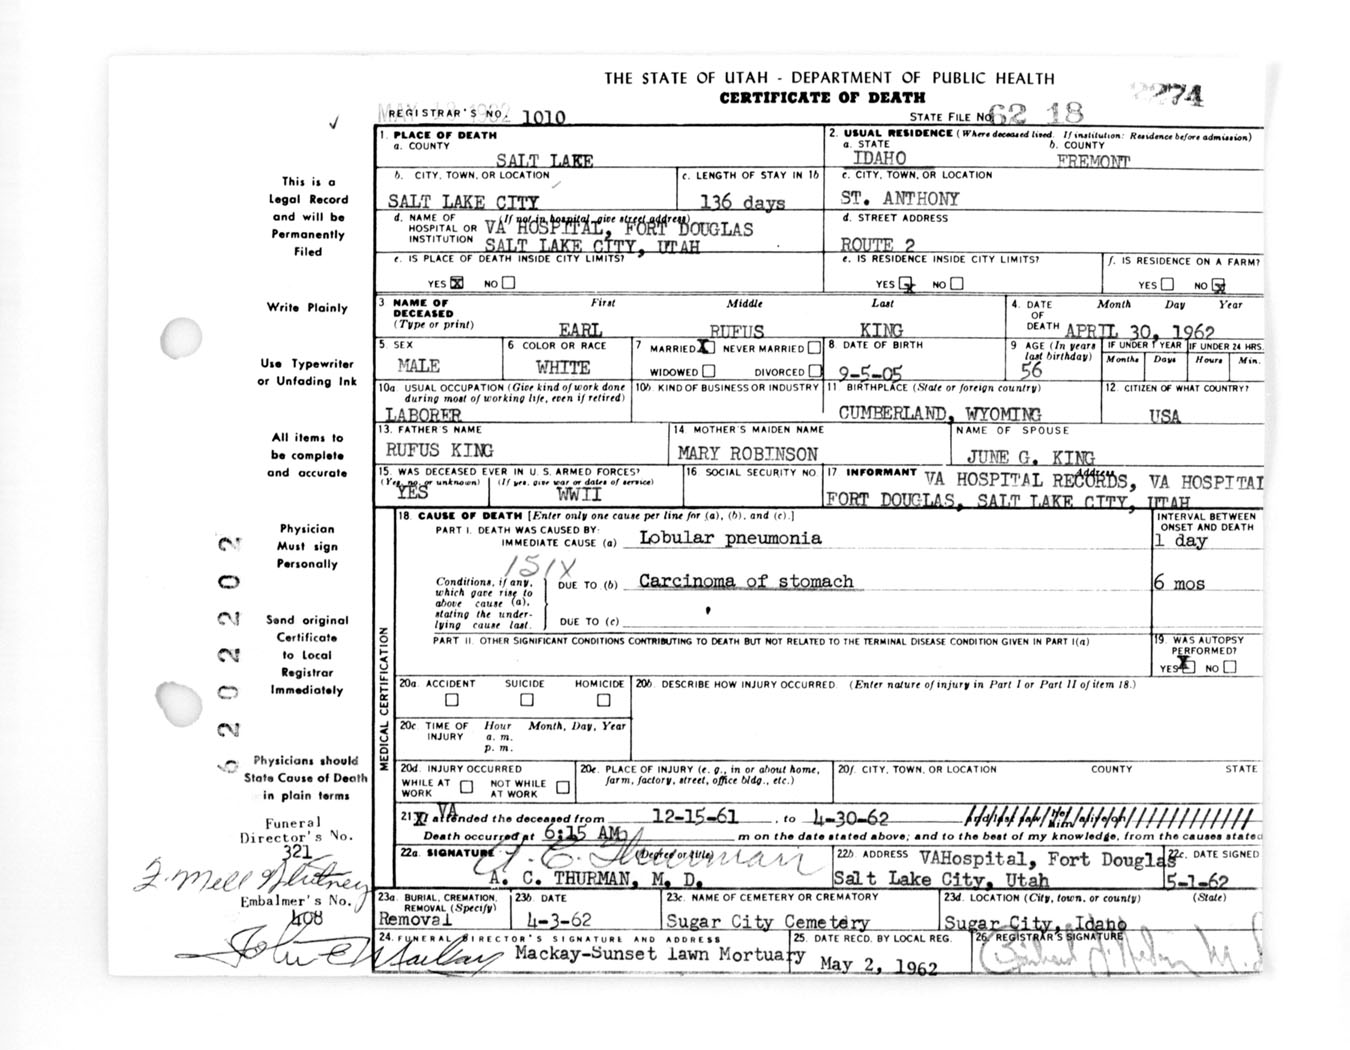 THE STATE OF UTAH - DEPARTMENT OF PUBLIC HEALTH
CERTIFICATE OF DEATH
2274
REGISTRAR'S NO. 1010
STATE FILE NO. 62 18
1. PLACE OF DEATH
a. COUNTY
SALT LAKE
2. USUAL RESIDENCE (Where deceased lived. If institution: Residence before admission)
a. STATE b. COUNTY
IDAHO FREMONT
b. CITY, TOWN, OR LOCATION
SALT LAKE CITY
c. LENGTH OF STAY IN 1b
136 days
c. CITY, TOWN, OR LOCATION
ST. ANTHONY
d. NAME OF HOSPITAL OR INSTITUTION (If not in hospital, give street address)
VA HOSPITAL, FORT DOUGLAS
SALT LAKE CITY, UTAH
d. STREET ADDRESS
ROUTE 2
e. IS PLACE OF DEATH INSIDE CITY LIMITS?
YES X NO
e. IS RESIDENCE INSIDE CITY LIMITS?
YES X NO
f. IS RESIDENCE ON A FARM?
YES NO X
3 NAME OF DECEASED (Type or print)
First Middle Last
EARL RUFUS KING
4. DATE OF DEATH Month Day Year
APRIL 30, 1962
5. SEX
MALE
6 COLOR OR RACE
WHITE
7 MARRIED X NEVER MARRIED
WIDOWED DIVORCED
8. DATE OF BIRTH
9-5-05
9 AGE (In years last birthday)
56
IF UNDER 1 YEAR IF UNDER 24 HRS.
Months Days Hours Min.
10a USUAL OCCUPATION (Give kind of work done during most of working life, even if retired)
LABORER
10b. KIND OF BUSINESS OR INDUSTRY
11 BIRTHPLACE (State or foreign country)
CUMBERLAND, WYOMING
12. CITIZEN OF WHAT COUNTRY?
USA
13. FATHER'S NAME
RUFUS KING
14 MOTHER'S MAIDEN NAME
MARY ROBINSON
NAME OF SPOUSE
JUNE G. KING
15. WAS DECEASED EVER IN U. S. ARMED FORCES?
(Yes, no, or unknown) (If yes, give war or dates of service)
YES WWII
16 SOCIAL SECURITY NO
17 INFORMANT Address
VA HOSPITAL RECORDS, VA HOSPITAL
FORT DOUGLAS, SALT LAKE CITY, UTAH
MEDICAL CERTIFICATION
18. CAUSE OF DEATH [Enter only one cause per line for (a), (b), and (c).]
INTERVAL BETWEEN ONSET AND DEATH
PART I. DEATH WAS CAUSED BY:
IMMEDIATE CAUSE (a) Lobular pneumonia 1 day
151X
Conditions, if any, which gave rise to above cause (a), stating the underlying cause last.
DUE TO (b) Carcinoma of stomach 6 mos
DUE TO (c)
PART II. OTHER SIGNIFICANT CONDITIONS CONTRIBUTING TO DEATH BUT NOT RELATED TO THE TERMINAL DISEASE CONDITION GIVEN IN PART I(a)
19. WAS AUTOPSY PERFORMED?
YES X NO
20a. ACCIDENT SUICIDE HOMICIDE
20b. DESCRIBE HOW INJURY OCCURRED. (Enter nature of injury in Part I or Part II of item 18.)
20c TIME OF INJURY Hour Month, Day, Year
a. m.
p. m.
20d. INJURY OCCURRED
WHILE AT WORK NOT WHILE AT WORK
20e. PLACE OF INJURY (e. g., in or about home, farm, factory, street, office bldg., etc.)
20f. CITY, TOWN, OR LOCATION COUNTY STATE
VA
21 I attended the deceased from 12-15-61, to 4-30-62
Death occurred at 6:15 AM m on the date stated above; and to the best of my knowledge, from the causes stated
22a. SIGNATURE (Degree or title)
A. C. Thurman
A. C. THURMAN, M. D.
22b ADDRESS VAHospital, Fort Douglas
Salt Lake City, Utah
22c. DATE SIGNED
5-1-62
23a. BURIAL, CREMATION, REMOVAL (Specify)
Removal
23b. DATE
4-3-62
23c. NAME OF CEMETERY OR CREMATORY
Sugar City Cemetery
23d. LOCATION (City, town, or county) (State)
Sugar City, Idaho
24. FUNERAL DIRECTOR'S SIGNATURE AND ADDRESS
Mackay-Sunset lawn Mortuary
25. DATE RECD. BY LOCAL REG.
May 2, 1962
26. REGISTRAR'S SIGNATURE
This is a
Legal Record
and will be
Permanently
Filed
Write Plainly
Use Typewriter
or Unfading Ink
All items to
be complete
and accurate
Physician
Must sign
Personally
Send original
Certificate
to Local
Registrar
Immediately
Physicians should
State Cause of Death
in plain terms
Funeral
Director's No.
321
Embalmer's No.
408
62 02202